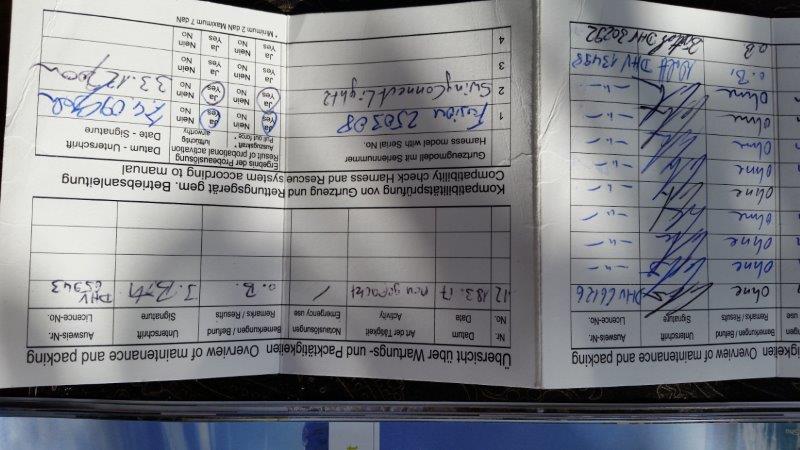 igkeiten Overview of maintenance and packing
Bemerkungen / Befund Unterschrift Ausweis-Nr.
Remarks / Results Signature Licence-No.
Ohne DHV 26126
Ohne -"-
Ohne -"-
Ohne -"-
Ohne
Ohne -"-
Ohne -"-
Ohne -"-
Ohne -"-
o.B. DHV 13498
o.B. DHV 30292
Übersicht über Wartungs- und Packtätigkeiten Overview of maintenance and packing
Nr. Datum Art der Tätigkeit Notauslösungen Bemerkungen / Befund Unterschrift Ausweis-Nr.
No. Date Activity Emergency use Remarks / Results Signature Licence-No.
12 18.3.17 neu gepackt / o.B. DHV
Kompatibilitätsprüfung von Gurtzeug und Rettungsgerät gem. Betriebsanleitung
Compatibility check Harness and Rescue system according to manual
Gurtzeugmodell mit Seriennummer Ergebnis der Probeauslösung Datum - Unterschrift
Harness model with Serial No. Result of probational activation Date - Signature
Auszugskraft * lufttüchtig
Pull out force * airworthy
1 Fusion 250308 Ja Nein Ja Nein
Yes No Yes No
2 Swing Connect Light 2 Ja Nein Ja Nein
Yes No Yes No
3 Ja Nein Ja Nein
Yes No Yes No
4 Ja Nein Ja Nein
Yes No Yes No
* Minimum 2 daN Maximum 7 daN